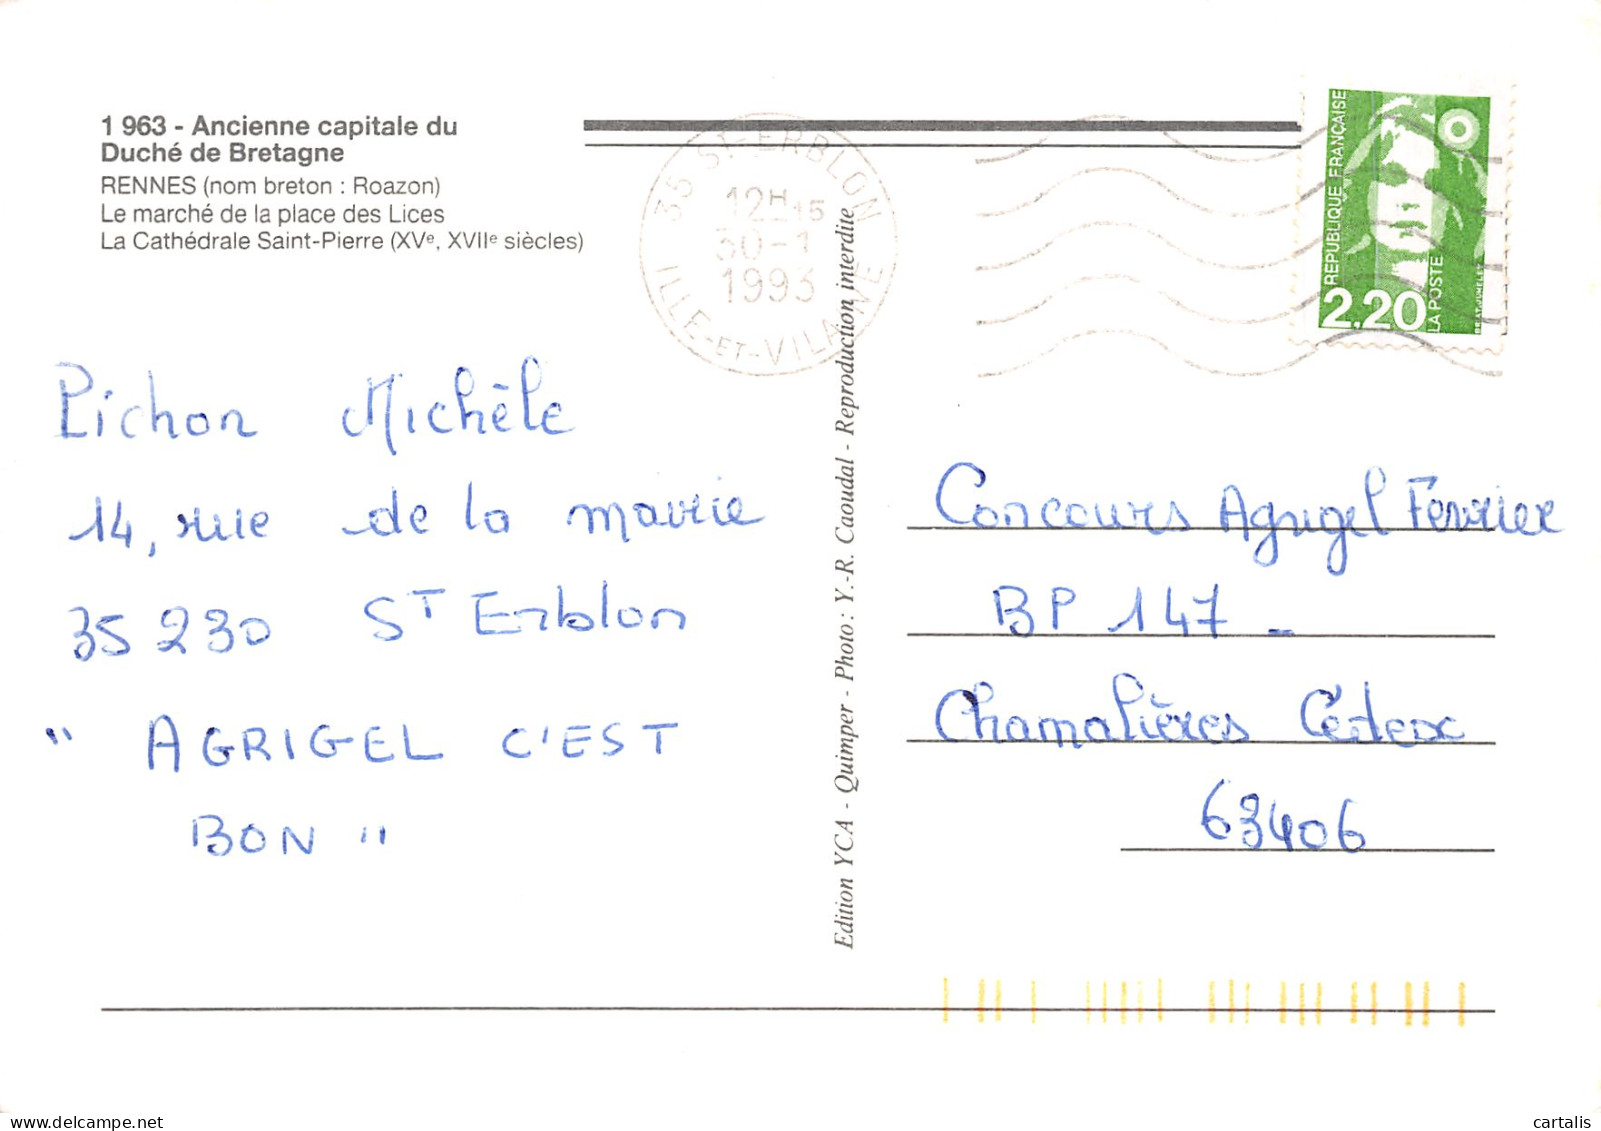 1 963 - Ancienne capitale du
Duché de Bretagne
RENNES (nom breton : Roazon)
Le marché de la place des Lices
La Cathédrale Saint-Pierre (XVe, XVIIe siècles)
35 ST-ERBLON
12H15
30-1
1993
ILLE-ET-VILAINE
RÉPUBLIQUE FRANÇAISE
2,20
LA POSTE
Pichon Michèle
14, rue de la mairie
35 230 ST Erblon
" AGRIGEL C'EST
BON "
Edition YCA - Quimper - Photo : Y.-R. Caoudal - Reproduction interdite
Concours Agrigel Fevrier
BP 147 -
Chamalières Cédex
63406
cartalis
delcampe.net